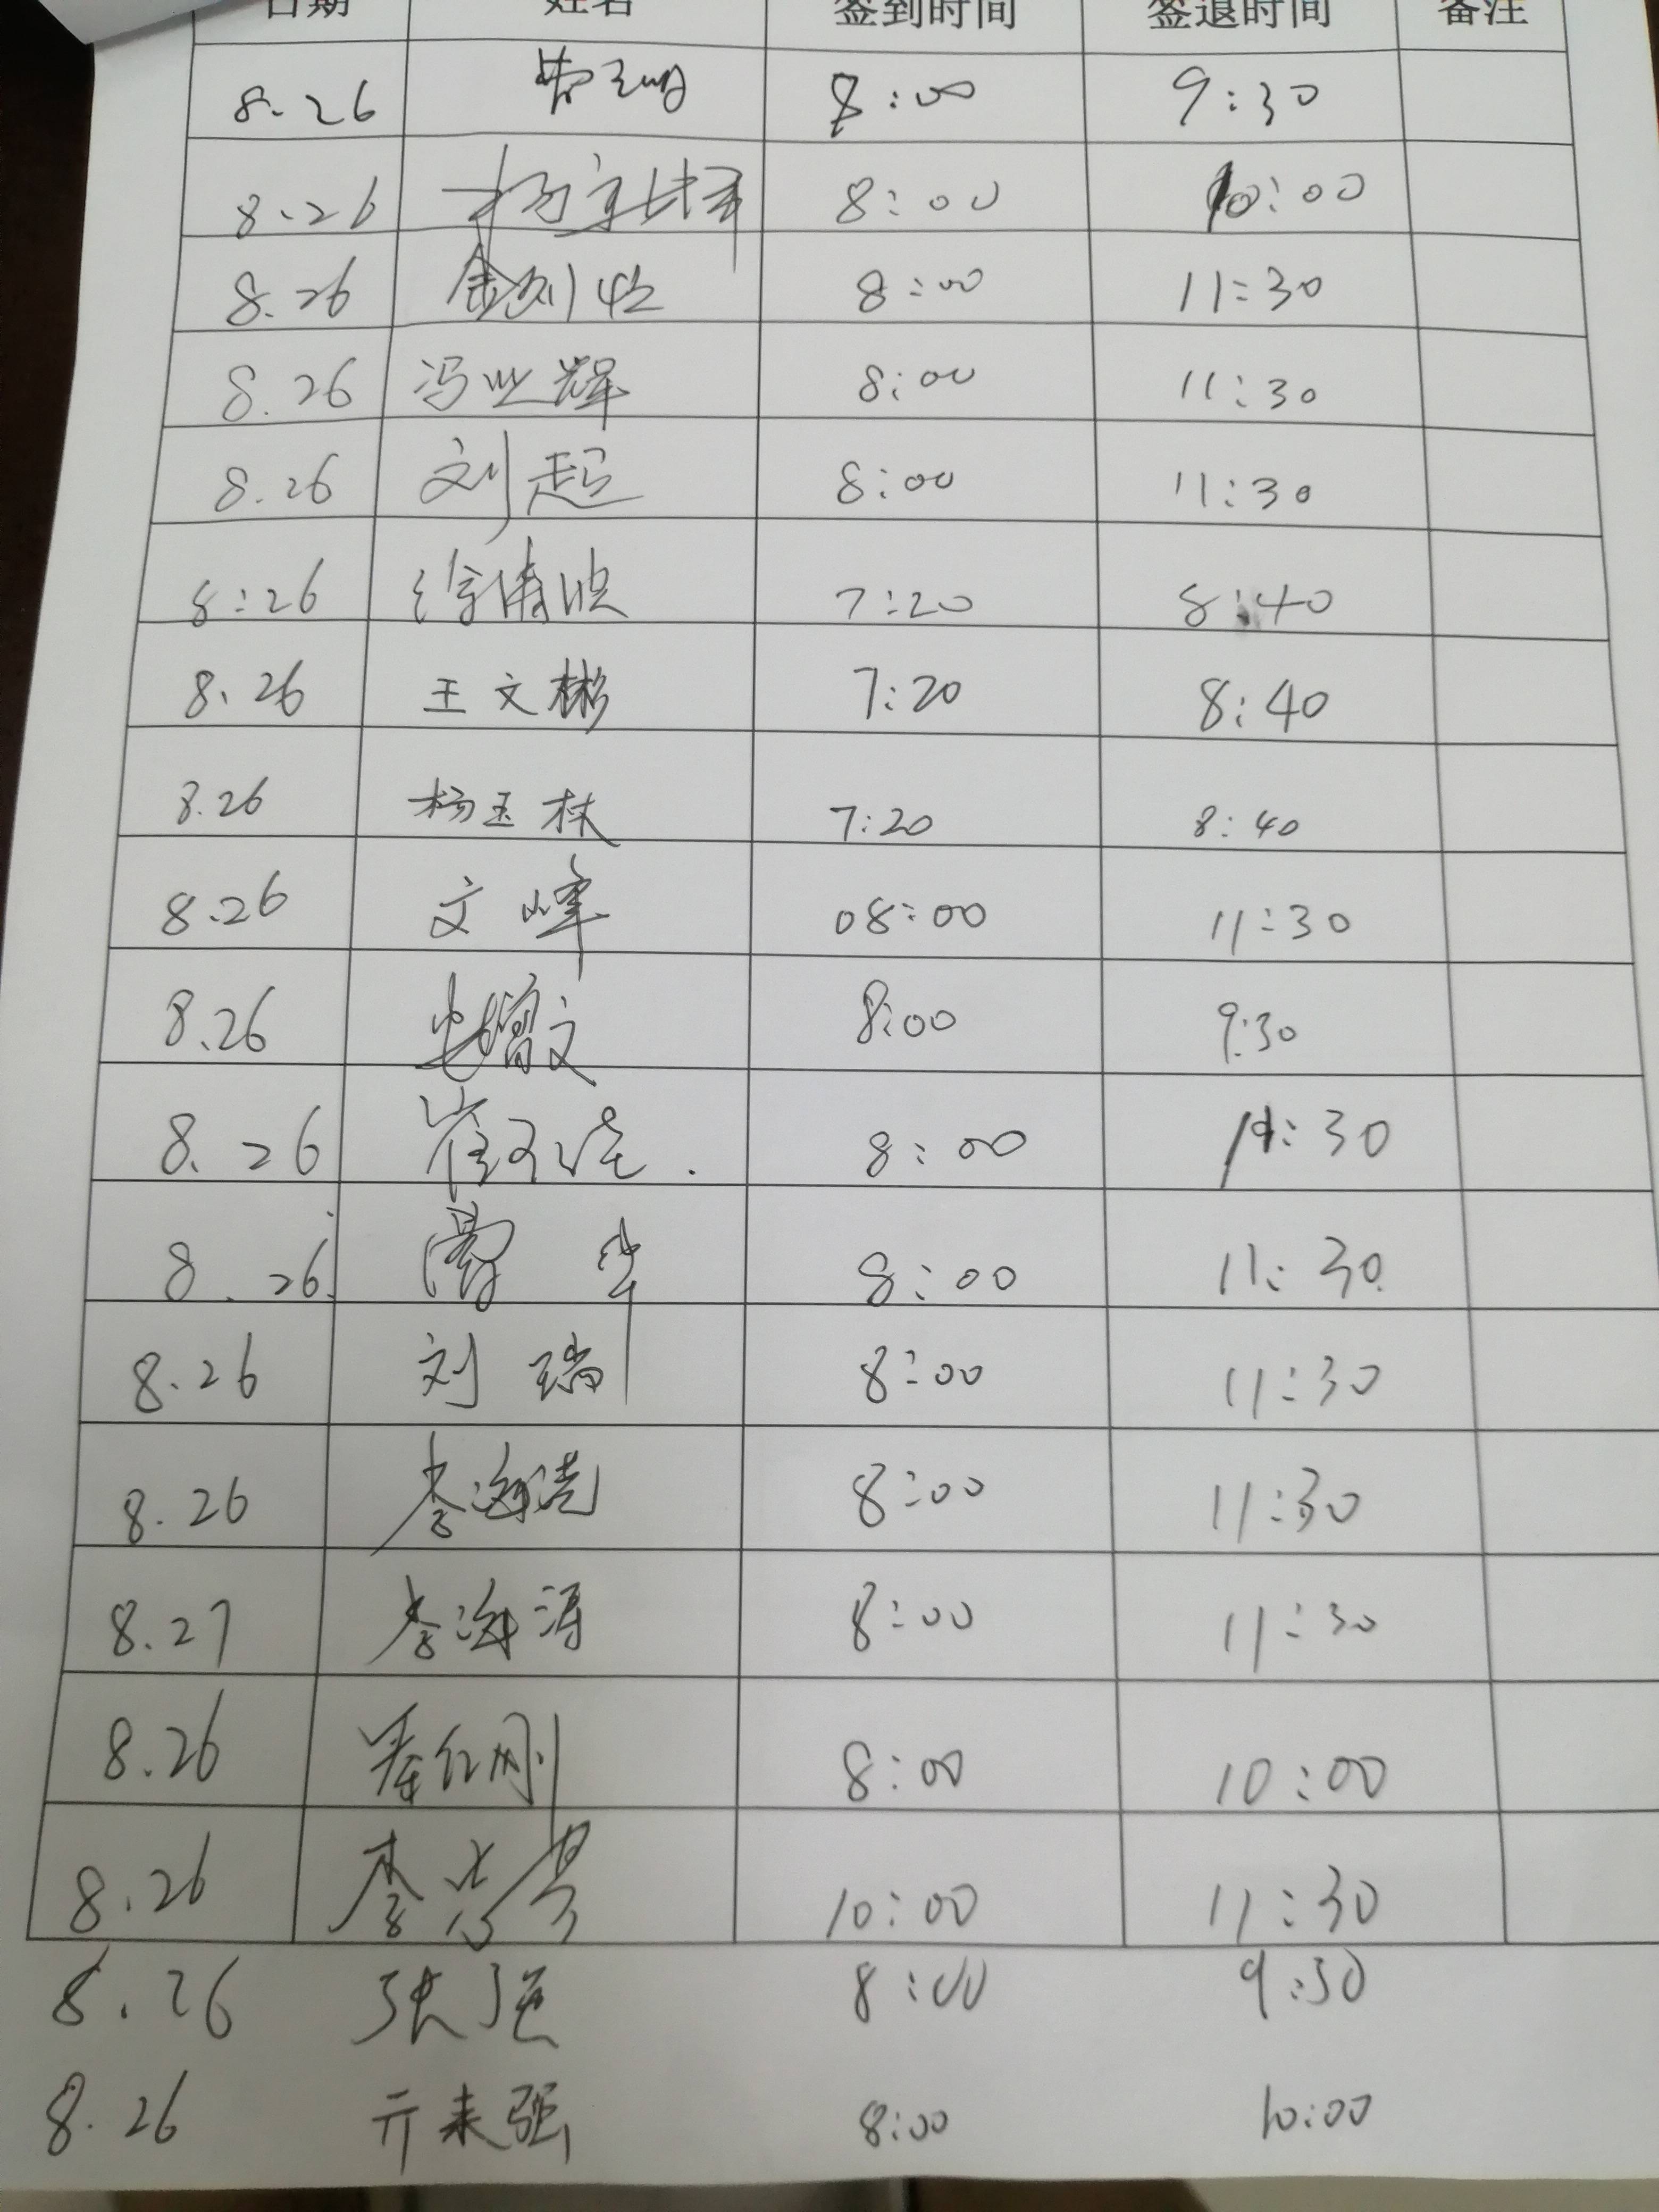 日期 姓名 签到时间 签退时间 备注
8.26 8:00 9:30
8.26 8:00 10:00
8.26 8:00 11:30
8.26 冯业辉 8:00 11:30
8.26 刘超 8:00 11:30
8:26 7:20 8:40
8.26 王文彬 7:20 8:40
8.26 杨玉林 7:20 8:40
8.26 文峰 08:00 11:30
8.26 文 8:00 9:30
8.26 崔 8:00 :30
8.26 8:00 11:30
8.26 刘瑞 8:00 11:30
8.26 李海 8:00 11:30
8.27 李海涛 8:00 11:30
8.26 秦红刚 8:00 10:00
8.26 李 10:00 11:30
8.26 张强 8:00 9:30
8.26 亓来强 8:00 10:00